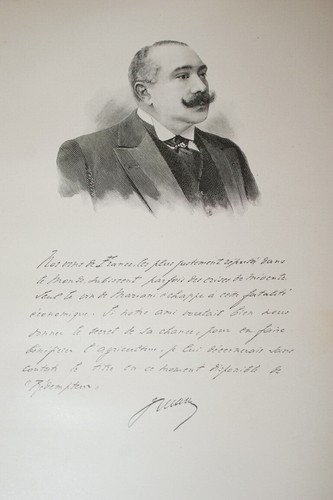 Nos vins de France, les plus justement réputés dans
le Monde, subissent parfois des crises de mévente.
Seul le vin de Mariani échappe à cette fatalité
économique. Si notre ami voulait bien nous
donner le secret de sa chance, pour en faire
bénéficier l'agriculture, je lui décernerais sans
conteste le titre en ce moment disponible de
"Rédempteur.